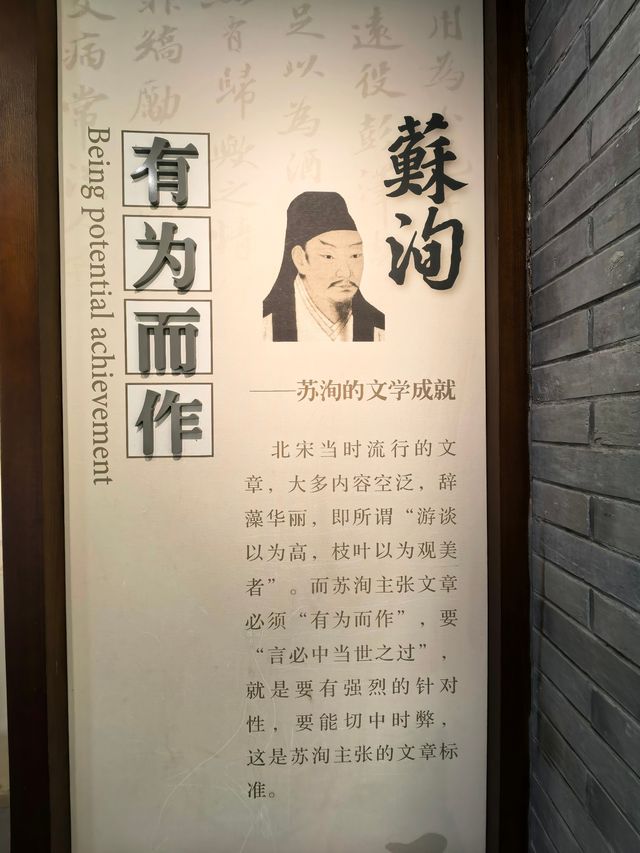 蘇洵
有为而作
Being potential achievement
——苏洵的文学成就
北宋当时流行的文
章，大多内容空泛，辞
藻华丽，即所谓“游谈
以为高，枝叶以为观美
者”。而苏洵主张文章
必须“有为而作”，要
“言必中当世之过”，
就是要有强烈的针对
性，要能切中时弊，
这是苏洵主张的文章标
准。
用为
遠役彭澤
足以為酒
有歸歟之情
非矯勵
病